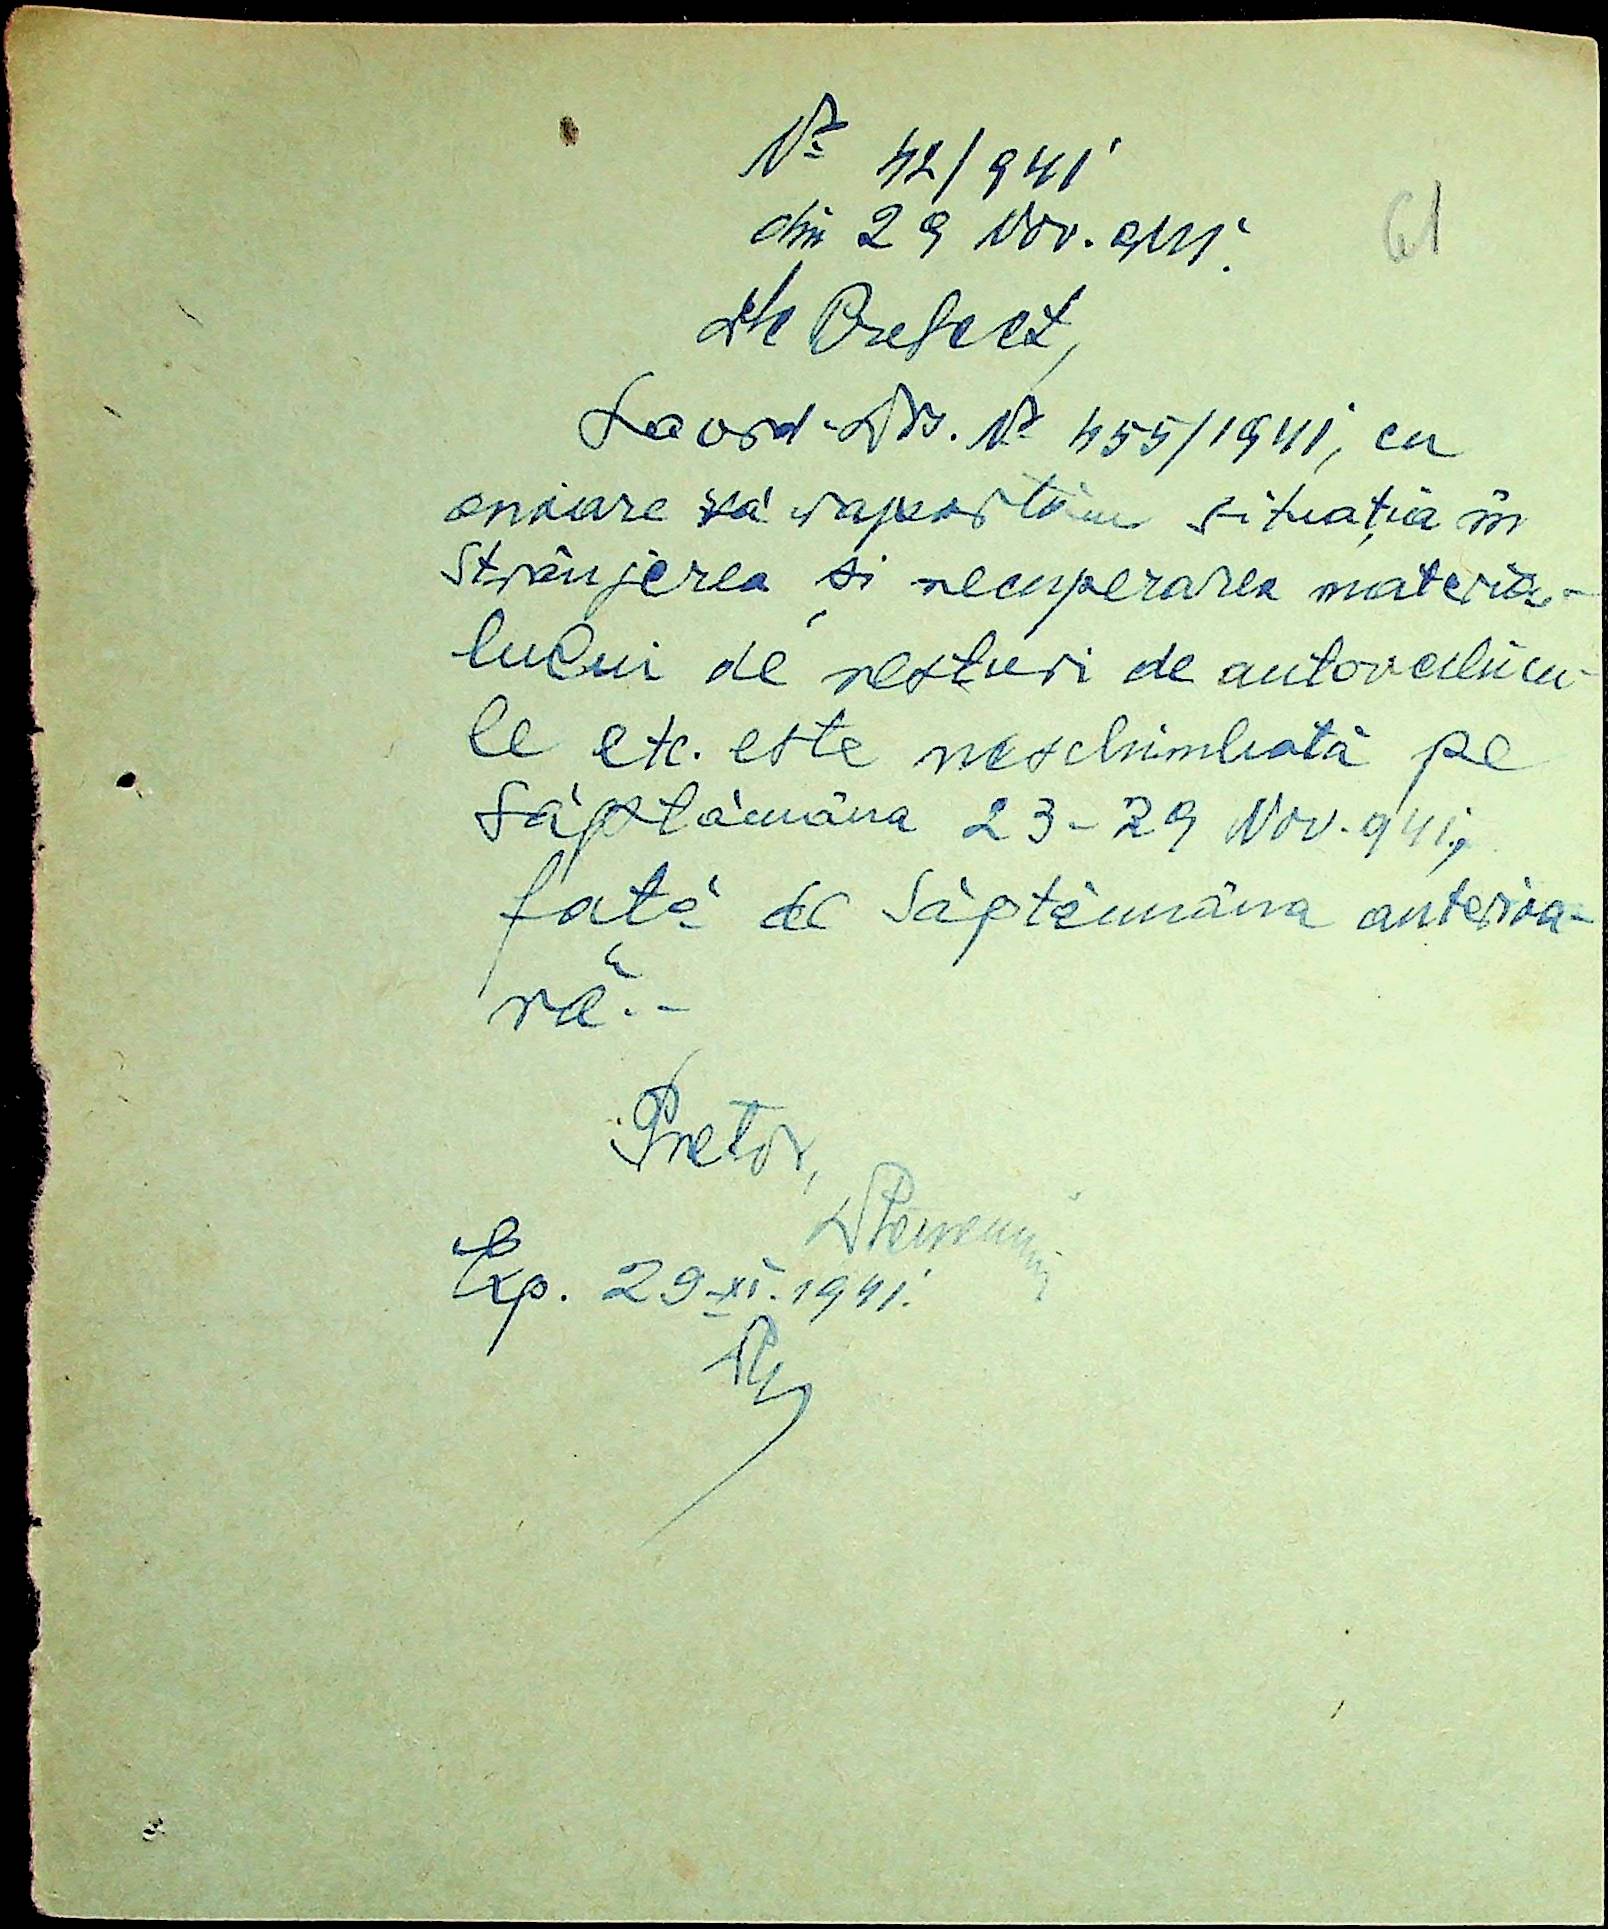 Nº 42/941
din 29 Nov. 941.
61
Dle Prefect,
La ord. Dvs. Nº 455/1941, cu
onoare vă raportăm situația în
Strângerea și recuperarea materia-
lului de resturi de autovehicu-
le etc. este neschimbată pe
Săptămâna 23-29 Nov. 941,
față de Săptămâna anterioa-
ră.-
Pretor,
Exp. 29-XI.1941.